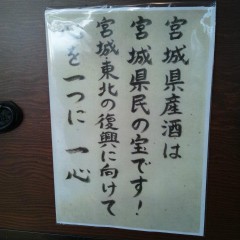 宮城県産酒は
宮城県民の宝です!
宮城・東北の復興に向けて
心を一つに 一心